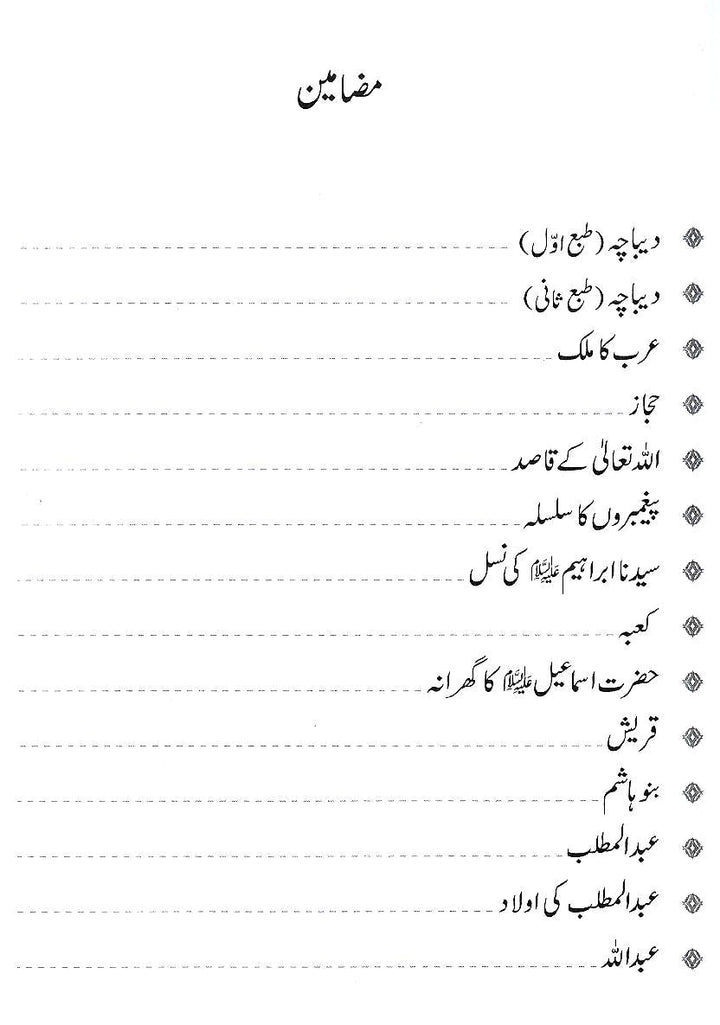 مضامین
دیباچہ (طبع اوّل)
دیباچہ (طبع ثانی)
عرب کا ملک
حجاز
اللہ تعالیٰ کے قاصد
پیغمبروں کا سلسلہ
سیدنا ابراہیم علیہ السلام کی نسل
کعبہ
حضرت اسماعیل علیہ السلام کا گھرانہ
قریش
بنو ہاشم
عبدالمطلب
عبدالمطلب کی اولاد
عبداللہ